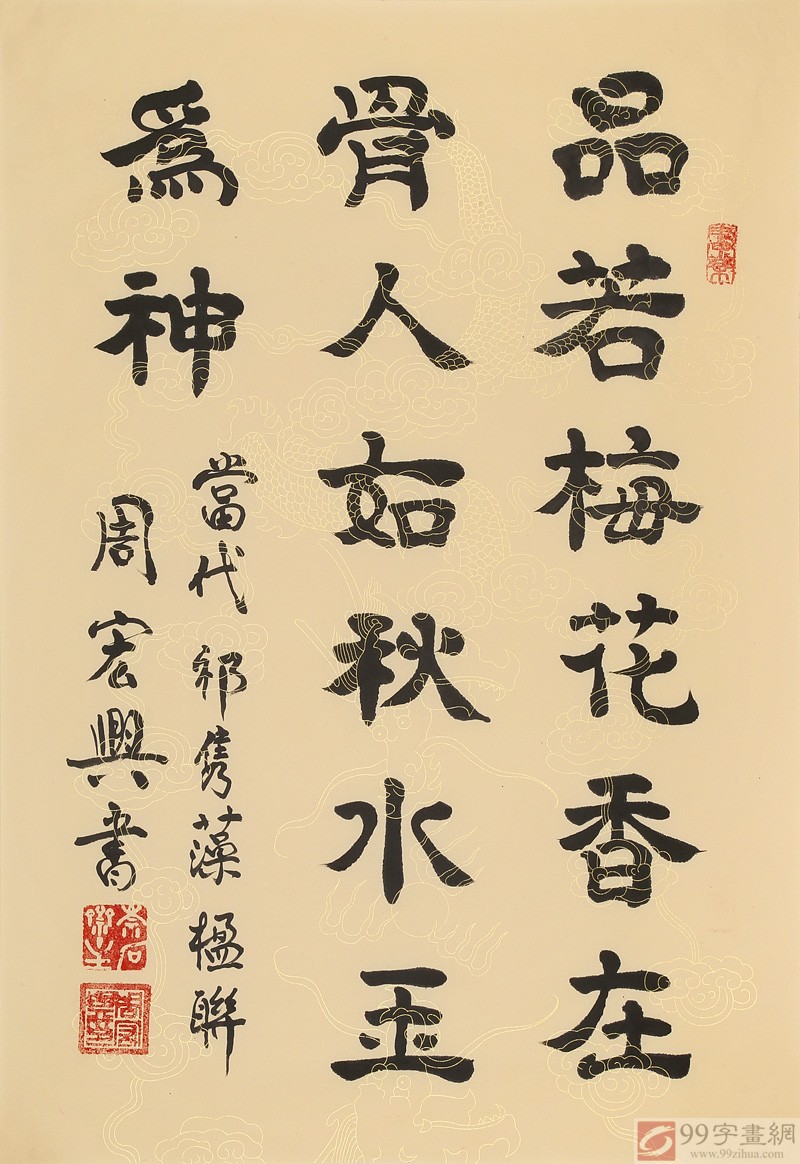 品若梅花香在
骨人如秋水玉
為神
當代祁雋藻楹聯
周宏興書
99字畫網
www.99zihua.com